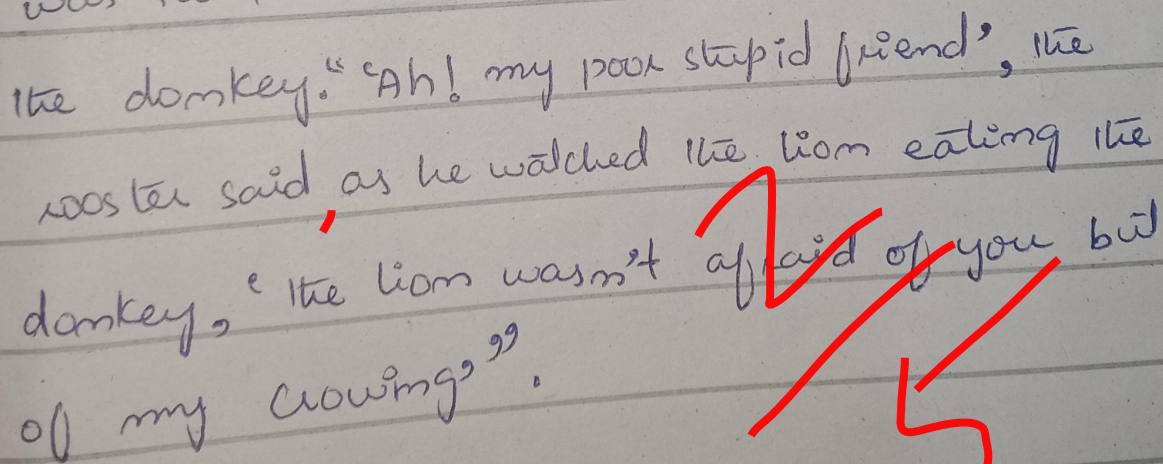 the donkey." 'Ah! my poor stupid friend', the
rooster said, as he watched the lion eating the
donkey, 'the lion wasn't afraid of you but
of my crowing'".
2/5